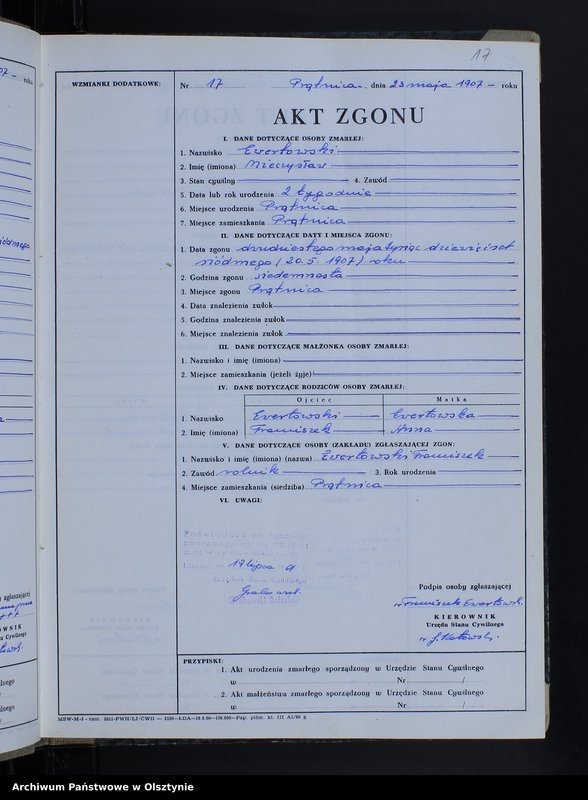 17
WZMIANKI DODATKOWE:
Nr 17 Prątnica, dnia 23 maja 1907 – roku
AKT ZGONU
I. DANE DOTYCZĄCE OSOBY ZMARŁEJ:
1. Nazwisko Ewertowski
2. Imię (imiona) Mieczysław
3. Stan cywilny 4. Zawód
5. Data lub rok urodzenia 2 tygodnie
6. Miejsce urodzenia Prątnica
7. Miejsce zamieszkania Prątnica
II. DANE DOTYCZĄCE DATY I MIEJSCA ZGONU:
1. Data zgonu dwudziestego maja tysiąc dziewięćset
siódmego (20.5.1907) roku
2. Godzina zgonu siedemnasta
3. Miejsce zgonu Prątnica
4. Data znalezienia zwłok
5. Godzina znalezienia zwłok
6. Miejsce znalezienia zwłok
III. DANE DOTYCZĄCE MAŁŻONKA OSOBY ZMARŁEJ:
1. Nazwisko i imię (imiona)
2. Miejsce zamieszkania (jeżeli żyje)
IV. DANE DOTYCZĄCE RODZICÓW OSOBY ZMARŁEJ:
Ojciec Matka
1. Nazwisko Ewertowski Ewertowska
2. Imię (imiona) Franciszek Anna
V. DANE DOTYCZĄCE OSOBY (ZAKŁADU) ZGŁASZAJĄCEJ ZGON:
1. Nazwisko i imię (imiona) (nazwa) Ewertowski Franciszek
2. Zawód rolnik 3. Rok urodzenia
4. Miejsce zamieszkania (siedziba) Prątnica
VI. UWAGI:
19 lipca
Urzędu Stanu Cywilnego
Podpis osoby zgłaszającej
Franciszek Ewertowski
KIEROWNIK
Urzędu Stanu Cywilnego
PRZYPISKI:
1. Akt urodzenia zmarłego sporządzony w Urzędzie Stanu Cywilnego
w Nr /
2. Akt małżeństwa zmarłego sporządzony w Urzędzie Stanu Cywilnego
w Nr /
Archiwum Państwowe w Olsztynie